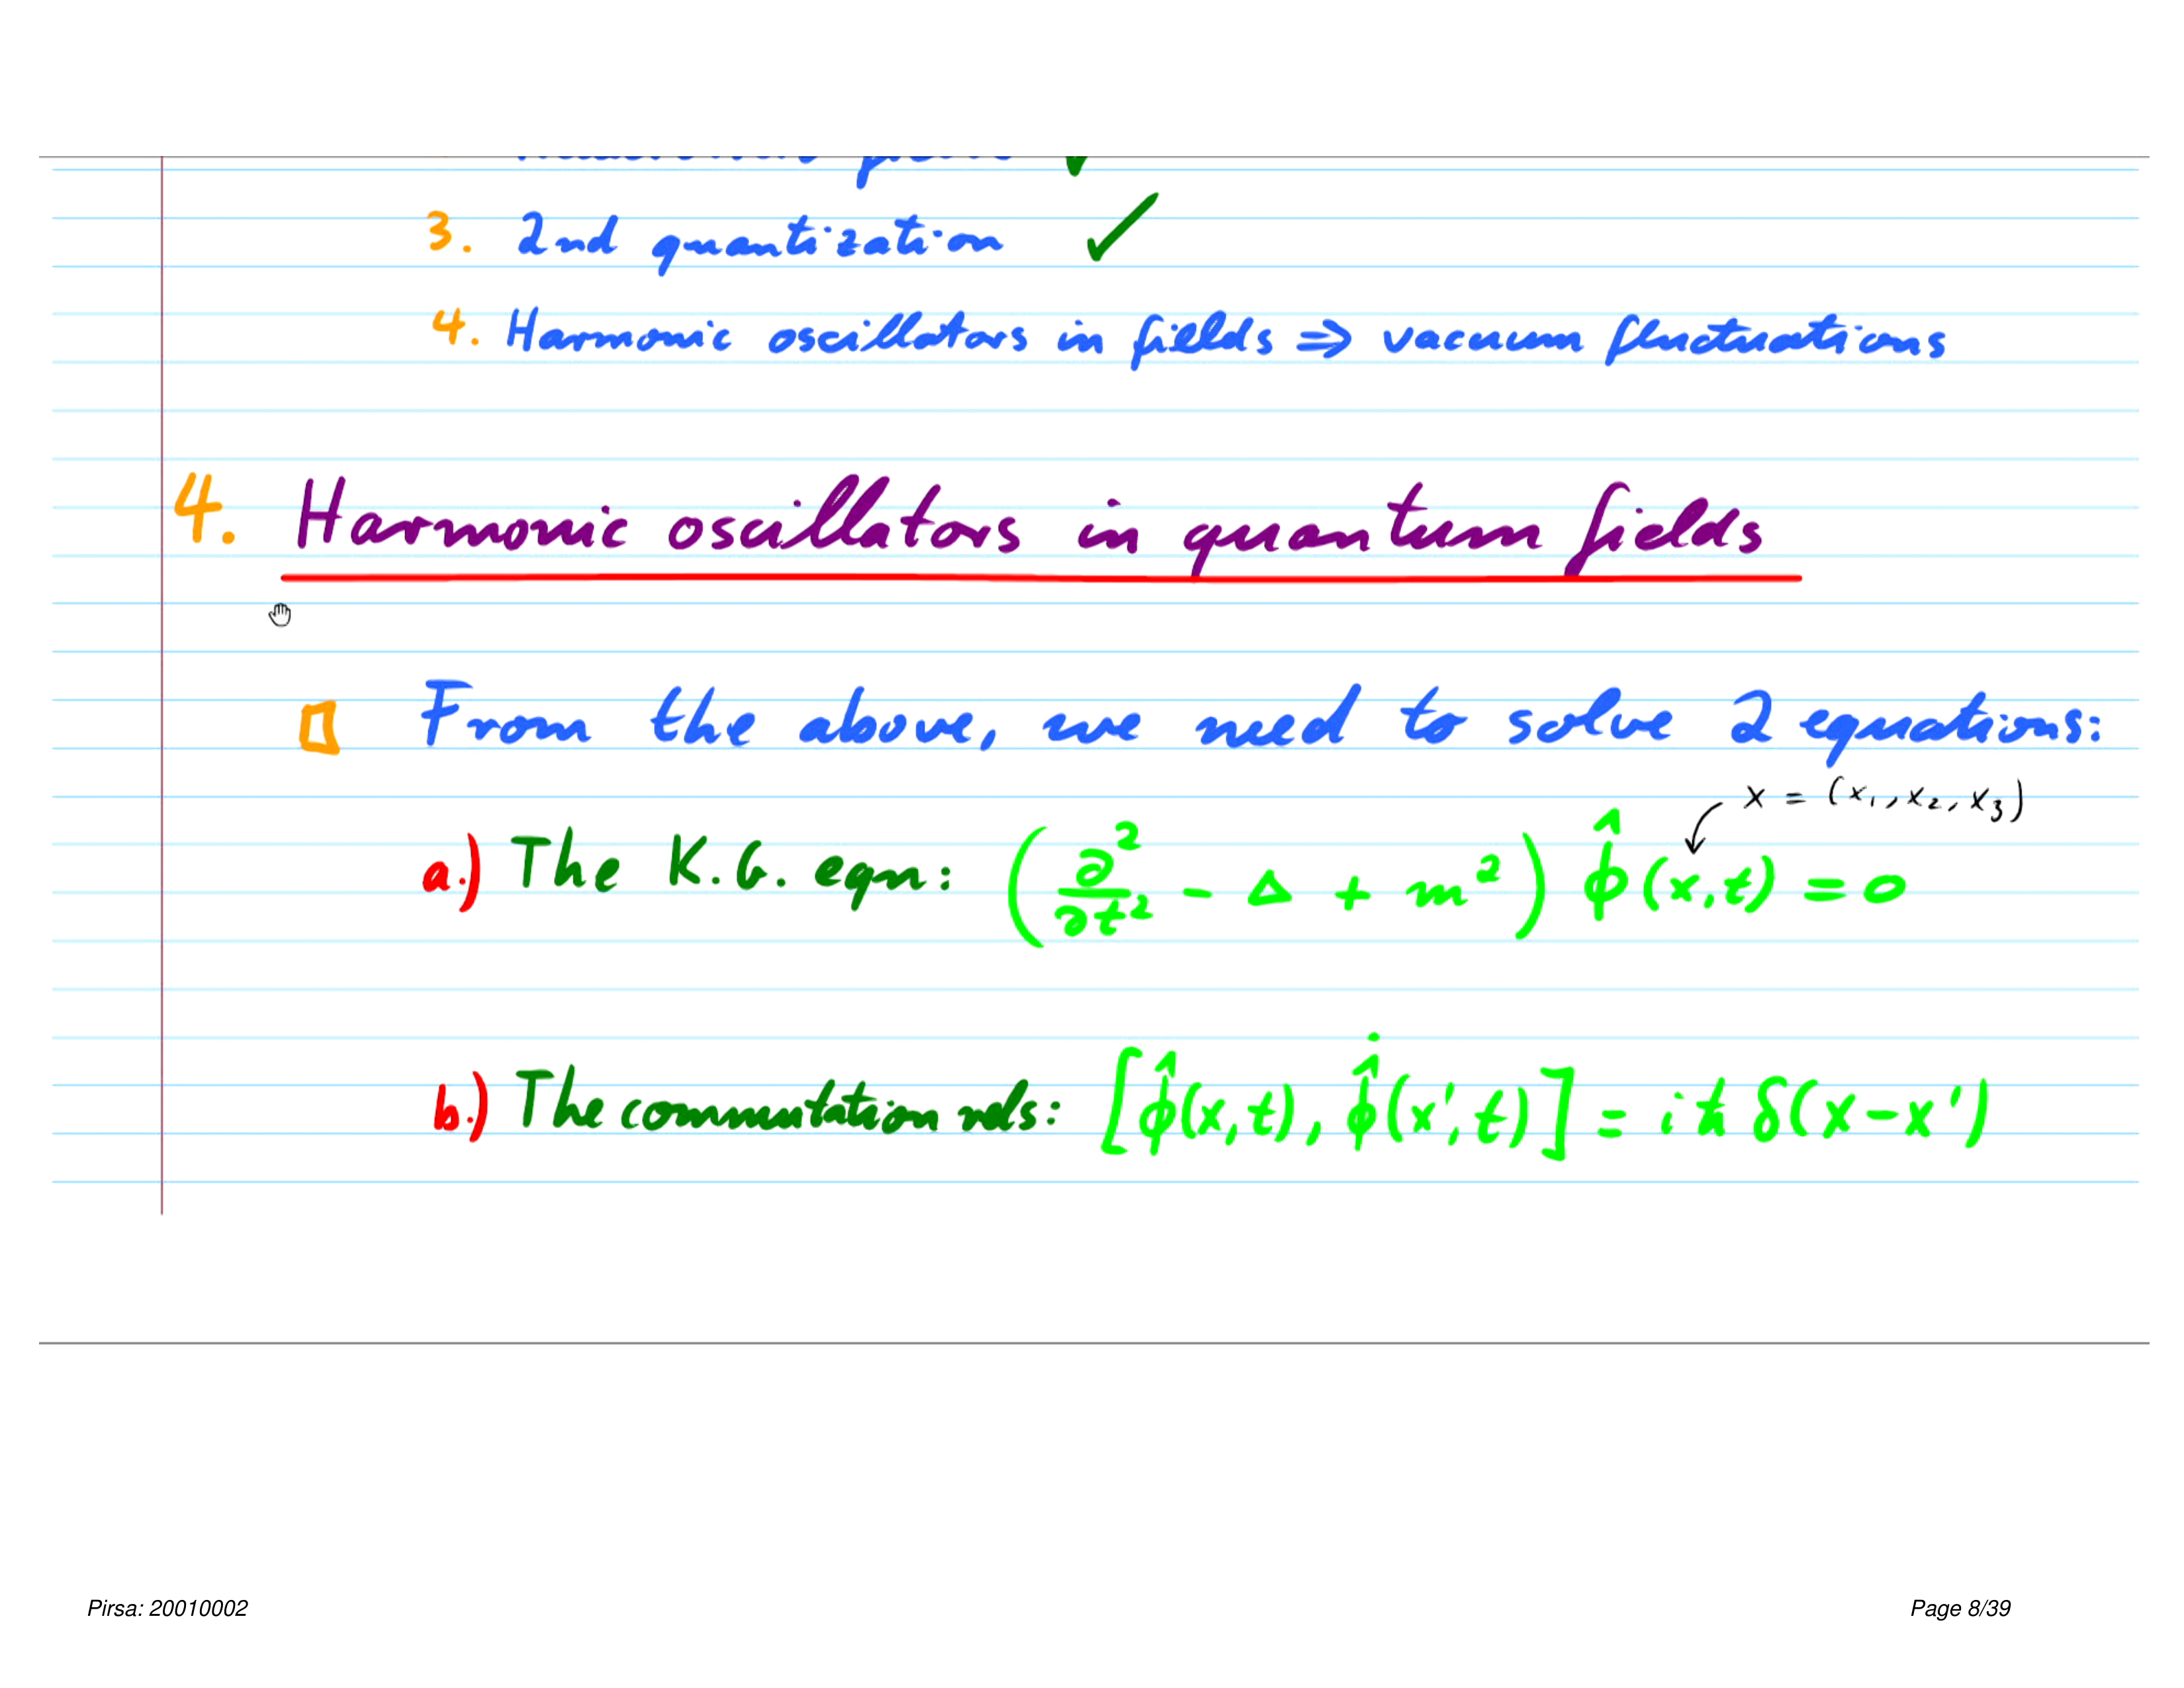 3. 2nd quantization ✓
4. Harmonic oscillators in fields ⇒ vacuum fluctuations
4. Harmonic oscillators in quantum fields
From the above, we need to solve 2 equations:
x = (x₁, x₂, x₃)
a.) The K.G. eqn: (∂²/∂t² - Δ + m²) φ̂(x,t) = 0
b.) The commutation rels: [φ̂(x,t), φ̂̇(x',t)] = iħ δ(x-x')
Pirsa: 20010002
Page 8/39